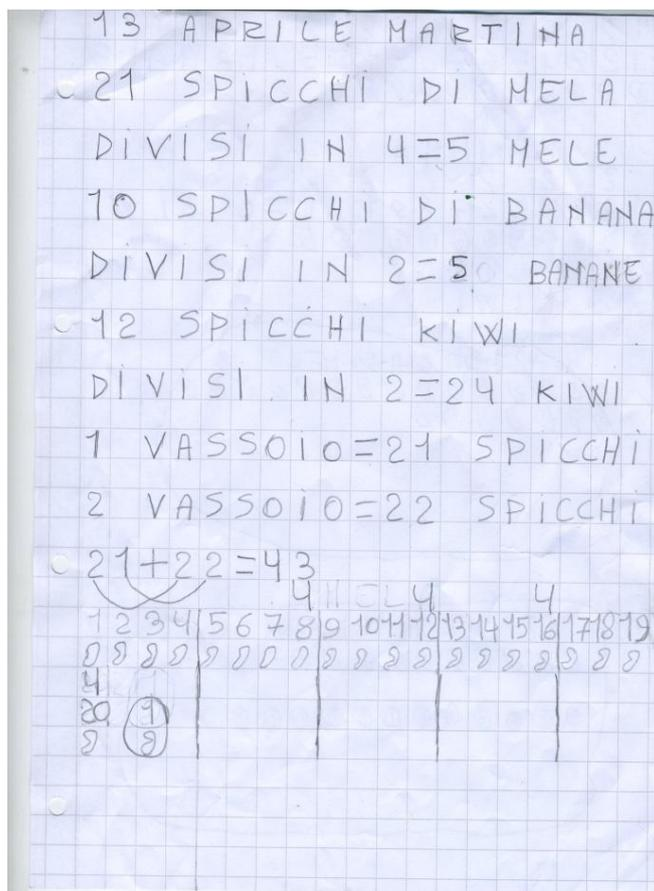 13 APRILE MARTINA
21 SPICCHI DI MELA
DIVISI IN 4=5 MELE
10 SPICCHI DI BANANA
DIVISI IN 2=5 BANANE
12 SPICCHI KIWI
DIVISI IN 2=24 KIWI
1 VASSOIO=21 SPICCHI
2 VASSOIO=22 SPICCHI
21+22=43
4 4 4
1 2 3 4 5 6 7 8 9 10 11 12 13 14 15 16 17 18 19
4
20 1